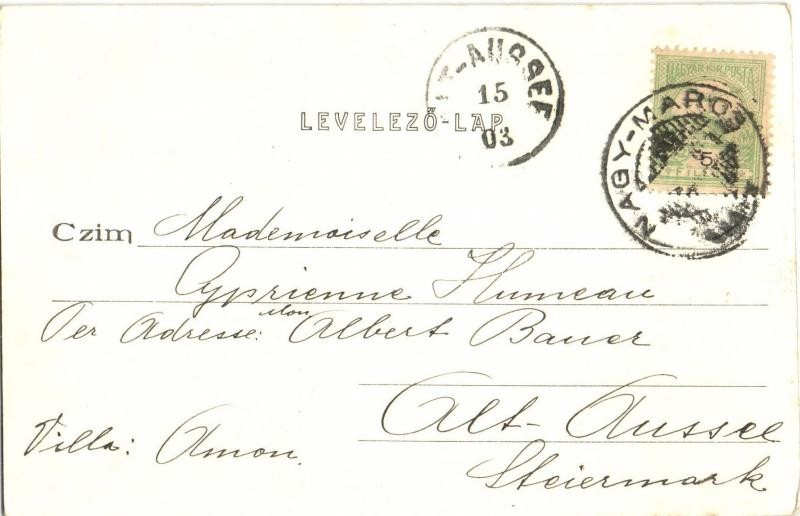 LEVELEZŐ-LAP
ALT-AUSSEE
15
03
MAGYAR KIR. POSTA
FILLÉR
NAGY-MAROS
Czim Mademoiselle
Cyprienne Humeau
Per Adresse: Mon Albert Bauer
Alt-Aussee
Villa: Amon.
Steiermark